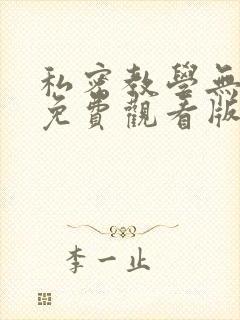 私密教學無
免費觀看版
李一止